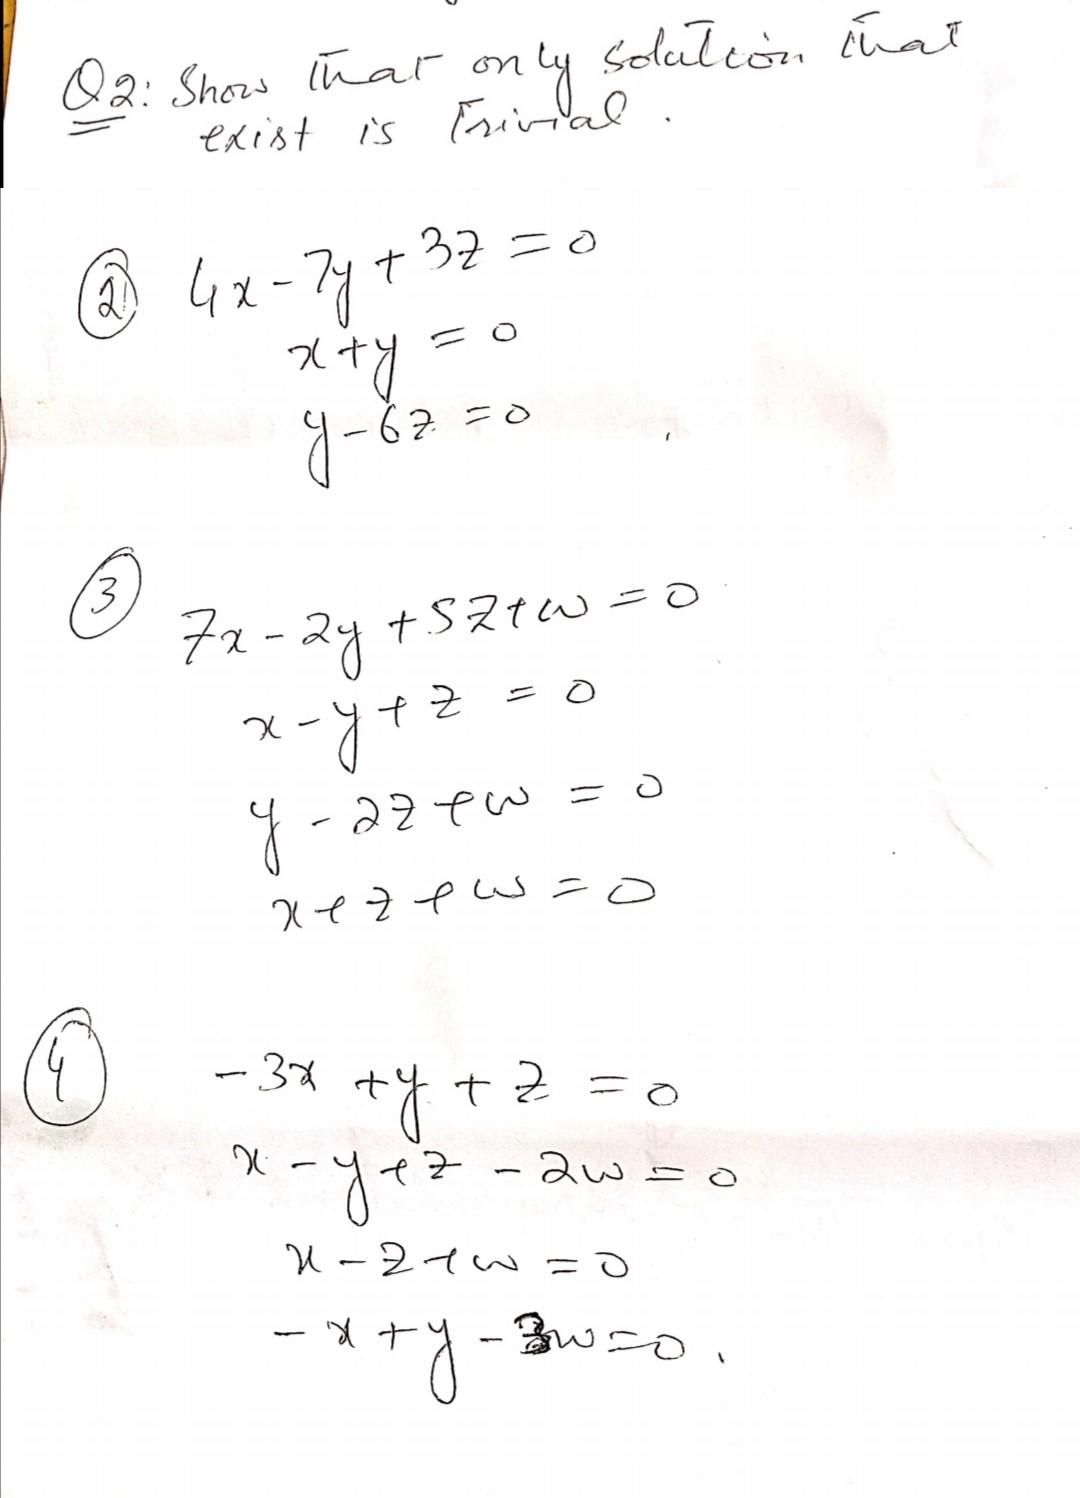 Q2: Show that only solution that
exist is Trivial.
② 4x - 7y + 3z = 0
x + y = 0
y - 6z = 0
③
7x - 2y + 5z + w = 0
x - y + z = 0
y - 2z + w = 0
x + z + w = 0
④ -3x + y + z = 0
x - y + z - 2w = 0
x - z + w = 0
-x + y - 3w = 0.